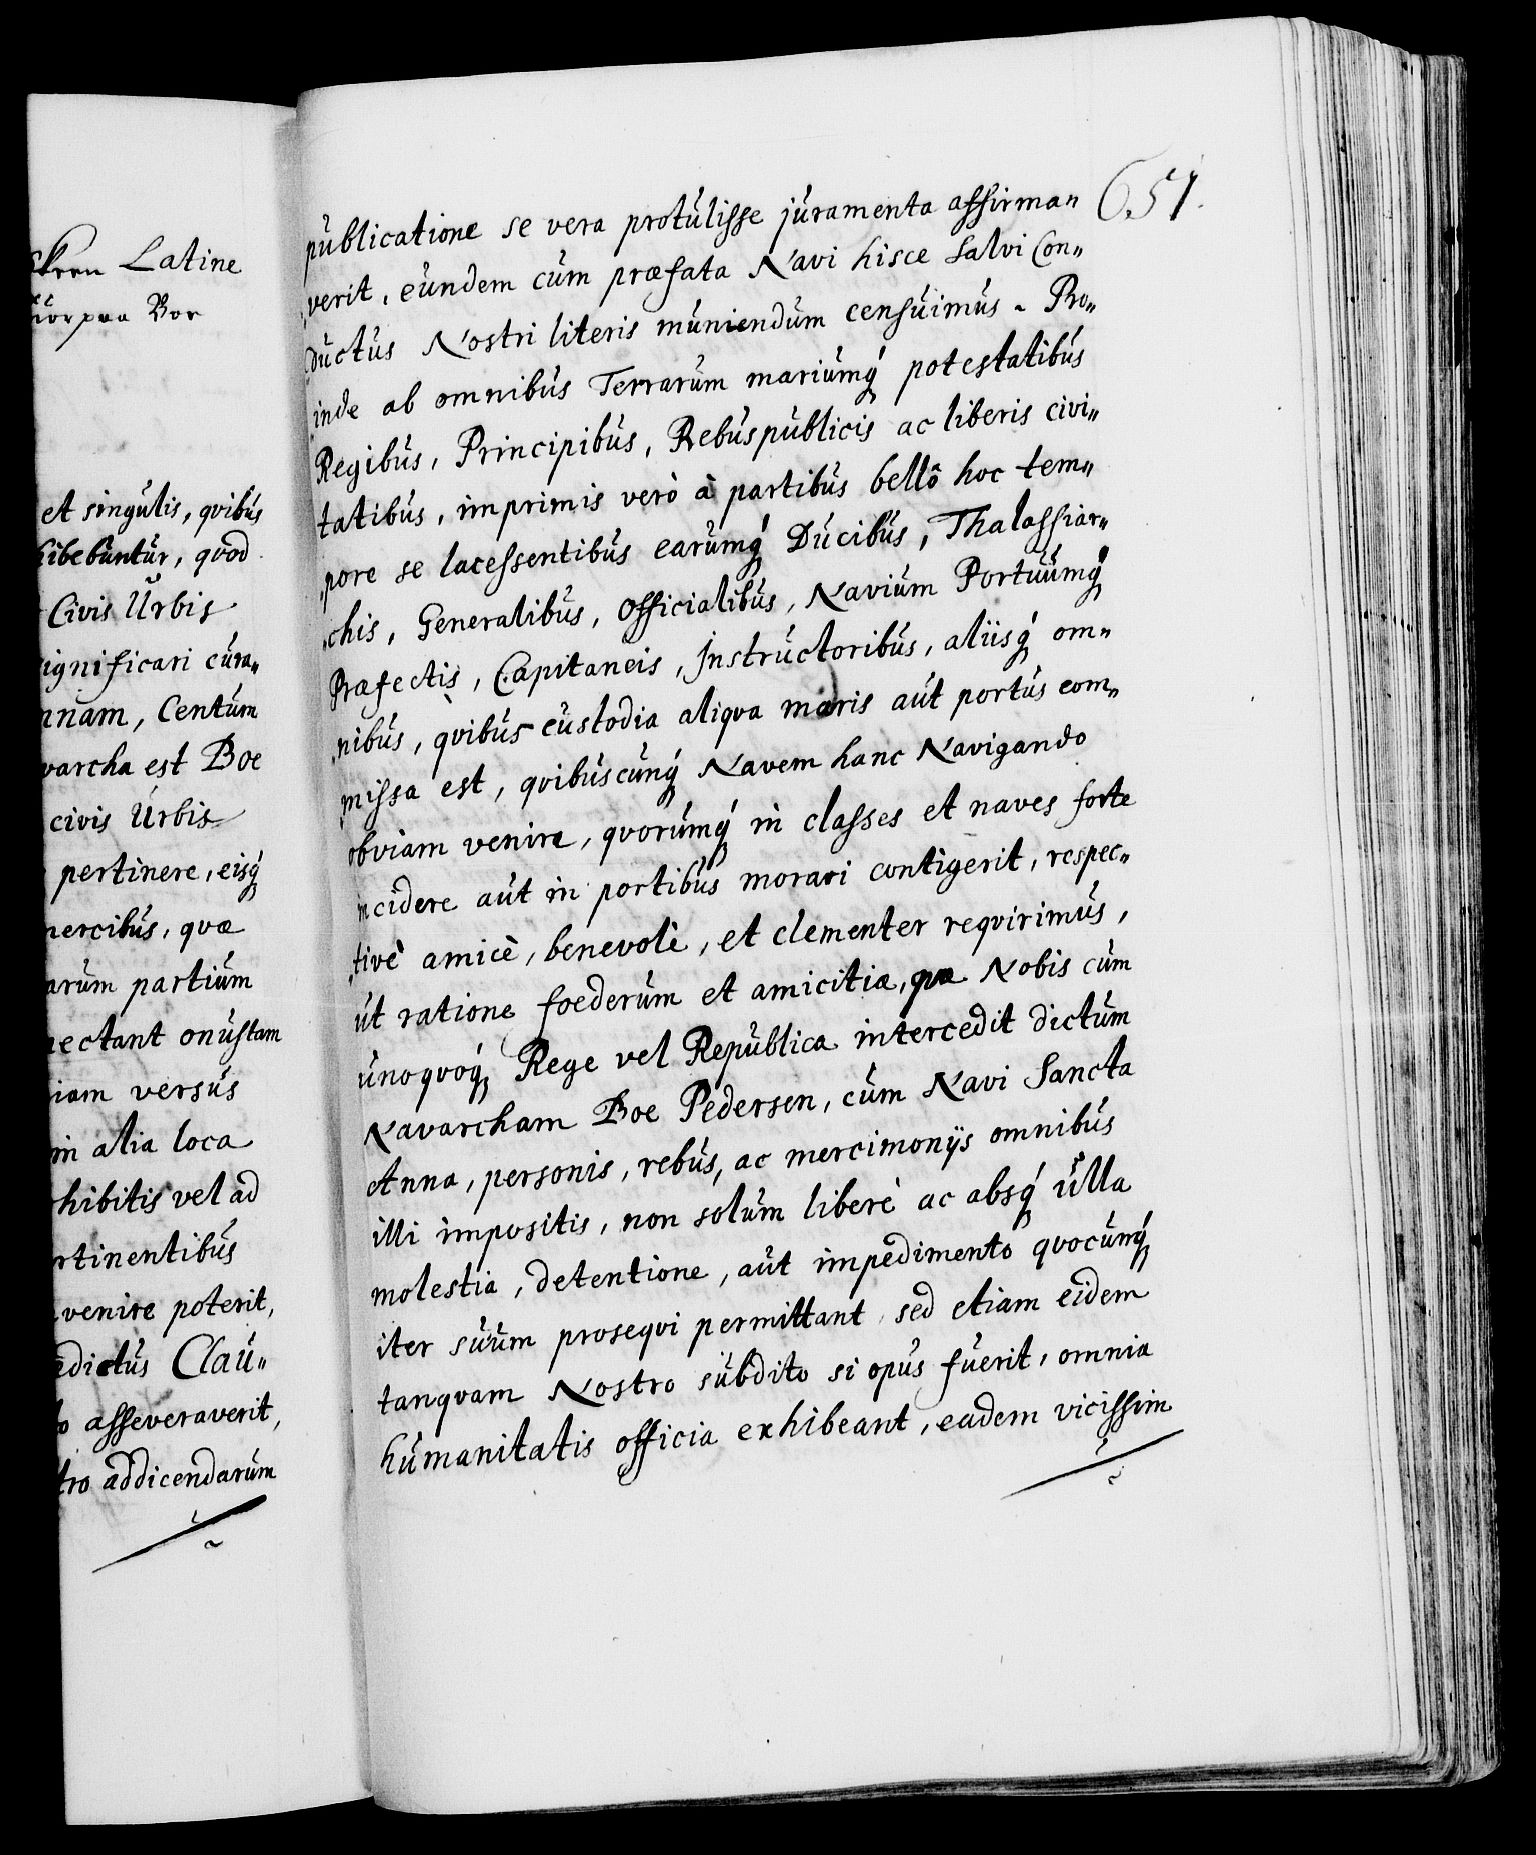 Latine
et singulis, qvibus
hibebuntur, qvod
Civis Urbis
ignificari cura„
nnam, Centum
varcha est Boe
civis Urbis
pertinere, eisq́
mercibus, qvæ
arum partium
nectant onustam
iam versus
in alia loca
hibitis vel ad
rtinentibus
venire poterit,
edictus Clau„
to asseveraverit,
tro addicendarum
651.
publicatione se vera protulisse juramenta affirma„
„verit, eundem cum præfata Navi hisce Salvi Con„
ductus Nostri literis muniendum censuimus. Pro„
inde ab omnibus Terrarum mariumq́ potestatibus
Regibus, Principibus, Rebuspublicis ac liberis civi„
tatibus, imprimis verò à partibus bellô hoc tem„
„pore se lacessentibus earumq́ Ducibus, Thalassiar„
„chis, Generalibus, Officialibus, Navium Portuumq́
Præfectis, Capitaneis, Instructoribus, aliisq́ om„
„nibus, qvibus custodia aliqva maris aut portus com„
„missa est, qvibuscunq́ Navem hanc Navigando
obviam venire, qvorumq́ in classes et naves forte
incidere aut in portibus morari contigerit, respec„
„tivè amicè, benevolè, et clementer reqvirimus,
ut ratione foederum et amicitiæ, qvæ Nobis cum
unoqvoq́ Rege vel Republica intercedit dictum
Navarcham Boe Pedersen, cum Navi Sancta
Anna, personis, rebus, ac mercimonijs omnibus
illi impositis, non solum liberè ac absq́ ulla
molestia, detentione, aut impedimento qvocunq́
iter suum proseqvi permittant, sed etiam eidem
tanqvam Nostro subdito si opus fuerit, omnia
humanitatis officia exhibeant, eadem vicissim